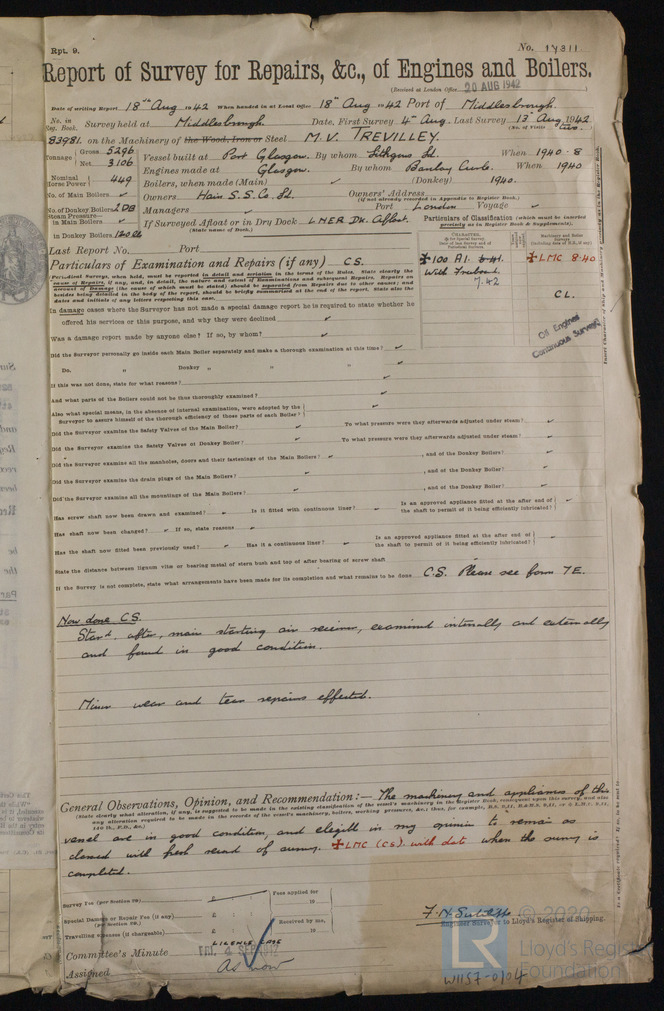 Rpt. 9.
No. 17311
Report of Survey for Repairs, &c., of Engines and Boilers.
(Received at London Office 20 AUG 1942)
Date of writing Report 18th Aug 1942 When handed in at Local Office 18th Aug 1942 Port of Middlesbrough.
No. in Reg. Book. Survey held at Middlesbrough. Date, First Survey 4th Aug. Last Survey 13th Aug, 1942
(No. of Visits two.)
83981. on the Machinery of the Wood, Iron or Steel M.V. TREVILLEY.
Tonnage Gross 5296 Net 3106
Vessel built at Port Glasgow. By whom Lithgows Ld. When 1940-8
Engines made at Glasgow. By whom Barclay Curle. When 1940
Nominal Horse Power 449
Boilers, when made (Main) ✓ (Donkey) 1940.
No. of Main Boilers ✓
Owners Hain S.S. Co. Ld. Owners' Address
(if not already recorded in Appendix to Register Book.)
No. of Donkey Boilers 2 DB
Managers Port London Voyage ✓
Steam Pressure in Main Boilers ✓
If Surveyed Afloat or in Dry Dock LNER Dk. Afloat.
(State name of Dock.)
in Donkey Boilers 120 lb
Particulars of Classification (which must be inserted precisely as in Register Book & Supplements).
Last Report No. Port
Particulars of Examination and Repairs (if any) CS.
✠ 100 A1. 6-41.
With Freeboard
7.42
✠ LMC 8.40
CL.
Oil Engines
Continuous Survey
In damage cases where the Surveyor has not made a special damage report he is required to state whether he
offered his services or this purpose, and why they were declined ✓
Was a damage report made by anyone else? If so, by whom? ✓
Did the Surveyor personally go inside each Main Boiler separately and make a thorough examination at this time? ✓
Do. „ Donkey „ „ „ ✓
If this was not done, state for what reasons? ✓
And what parts of the Boilers could not be thus thoroughly examined? ✓
Also what special means, in the absence of internal examination, were adopted by the
Surveyor to assure himself of the thorough efficiency of those parts of each Boiler? ✓
Did the Surveyor examine the Safety Valves of the Main Boiler? ✓ To what pressure were they afterwards adjusted under steam? ✓
Did the Surveyor examine the Safety Valves of Donkey Boiler? ✓ To what pressure were they afterwards adjusted under steam? ✓
Did the Surveyor examine all the manholes, doors and their fastenings of the Main Boilers? ✓ , and of the Donkey Boiler? ✓
Did the Surveyor examine the drain plugs of the Main Boilers? ✓ , and of the Donkey Boiler? ✓
Did the Surveyor examine all the mountings of the Main Boilers? ✓ , and of the Donkey Boiler? ✓
Has screw shaft now been drawn and examined? ✓ Is it fitted with continuous liner? ✓ Is an approved appliance fitted at the after end of the shaft to permit of it being efficiently lubricated? ✓
Has shaft now been changed? ✓ If so, state reasons ✓
Has the shaft now fitted been previously used? ✓ Has it a continuous liner? ✓ Is an approved appliance fitted at the after end of the shaft to permit of it being efficiently lubricated? ✓
State the distance between lignum vitæ or bearing metal of stern bush and top of after bearing of screw shaft
If the Survey is not complete, state what arrangements have been made for its completion and what remains to be done C.S. Please see form 7E.
Now done CS.
Starbd. after, main starting air receiver, examined internally and externally
and found in good condition.
Minor wear and tear repairs effected.
General Observations, Opinion, and Recommendation:— The machinery and appliances of this
vessel are in good condition, and eligible in my opinion to remain as
classed with fresh record of survey. ✠ LMC (CS). with date when the survey is
completed.
Survey Fee (per Section 29) £ Fees applied for
Special Damage or Repair Fee (if any) £
(per Section 29)
Received by me,
Travelling Expenses (if chargeable) £
F. H. Sutcliffe
Engineer Surveyor to Lloyd's Register of Shipping.
LICENCE CASE
Committee's Minute FRI. 4 SEP 1942
Assigned As now
© 2020
LR
Lloyd's Register
Foundation
W1157-0104